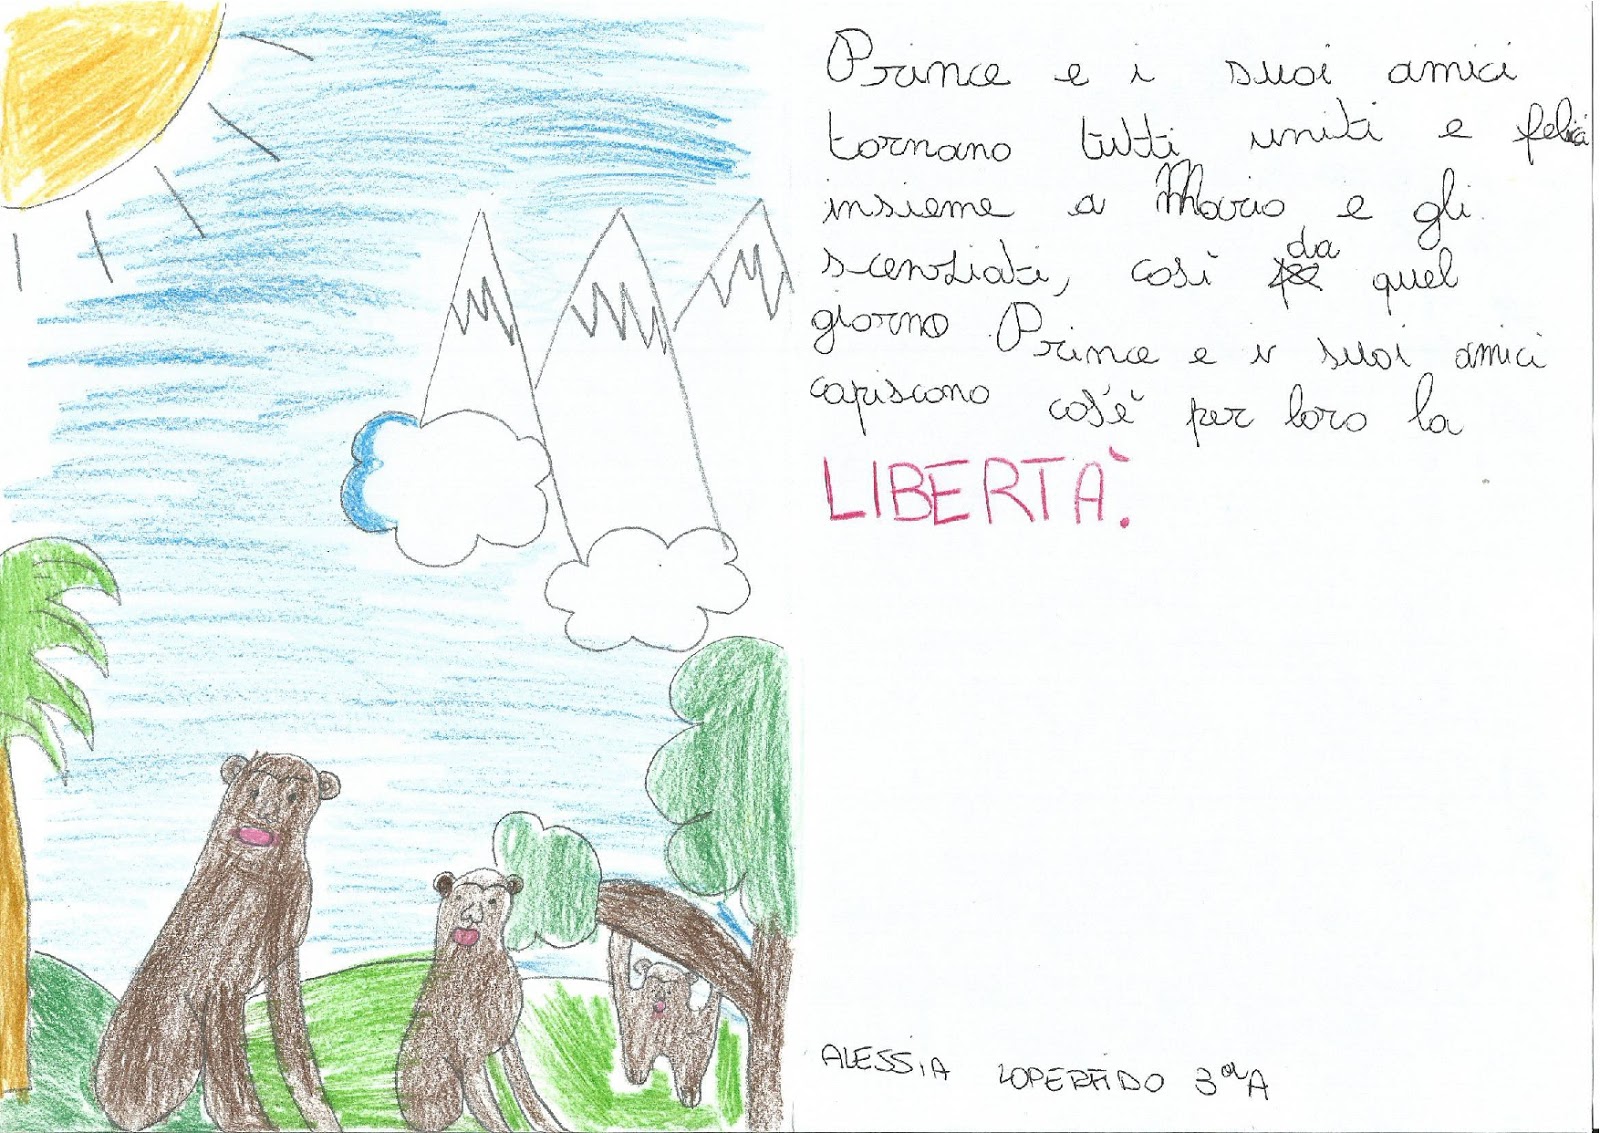 Prince e i suoi amici
tornano tutti uniti e felici
insieme a Mario e gli
scenziati, così da quel
giorno Prince e i suoi amici
capiscono cos'è per loro la
LIBERTÀ.
ALESSIA LOPERFIDO 3ªA